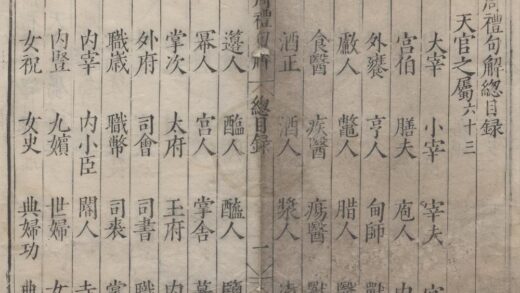 周禮句解總目錄
天官之屬六十三
大宰 小宰 宰夫
宮伯 膳夫 庖人 內
外饔 亨人 甸師 獸
人 鼈人 腊人
食醫 疾醫 瘍醫 獸
酒正 酒人 漿人
禮句解 總目錄 一
籩人 醢人 醯人
冪人 宮人 掌舍
掌次 太府 王府 內
外府 司會 司書 職
職歲 職幣 司裘 掌
內宰 內小臣 閽人 寺
內豎 九嬪 世婦 女
女祝 女史 典婦功 典